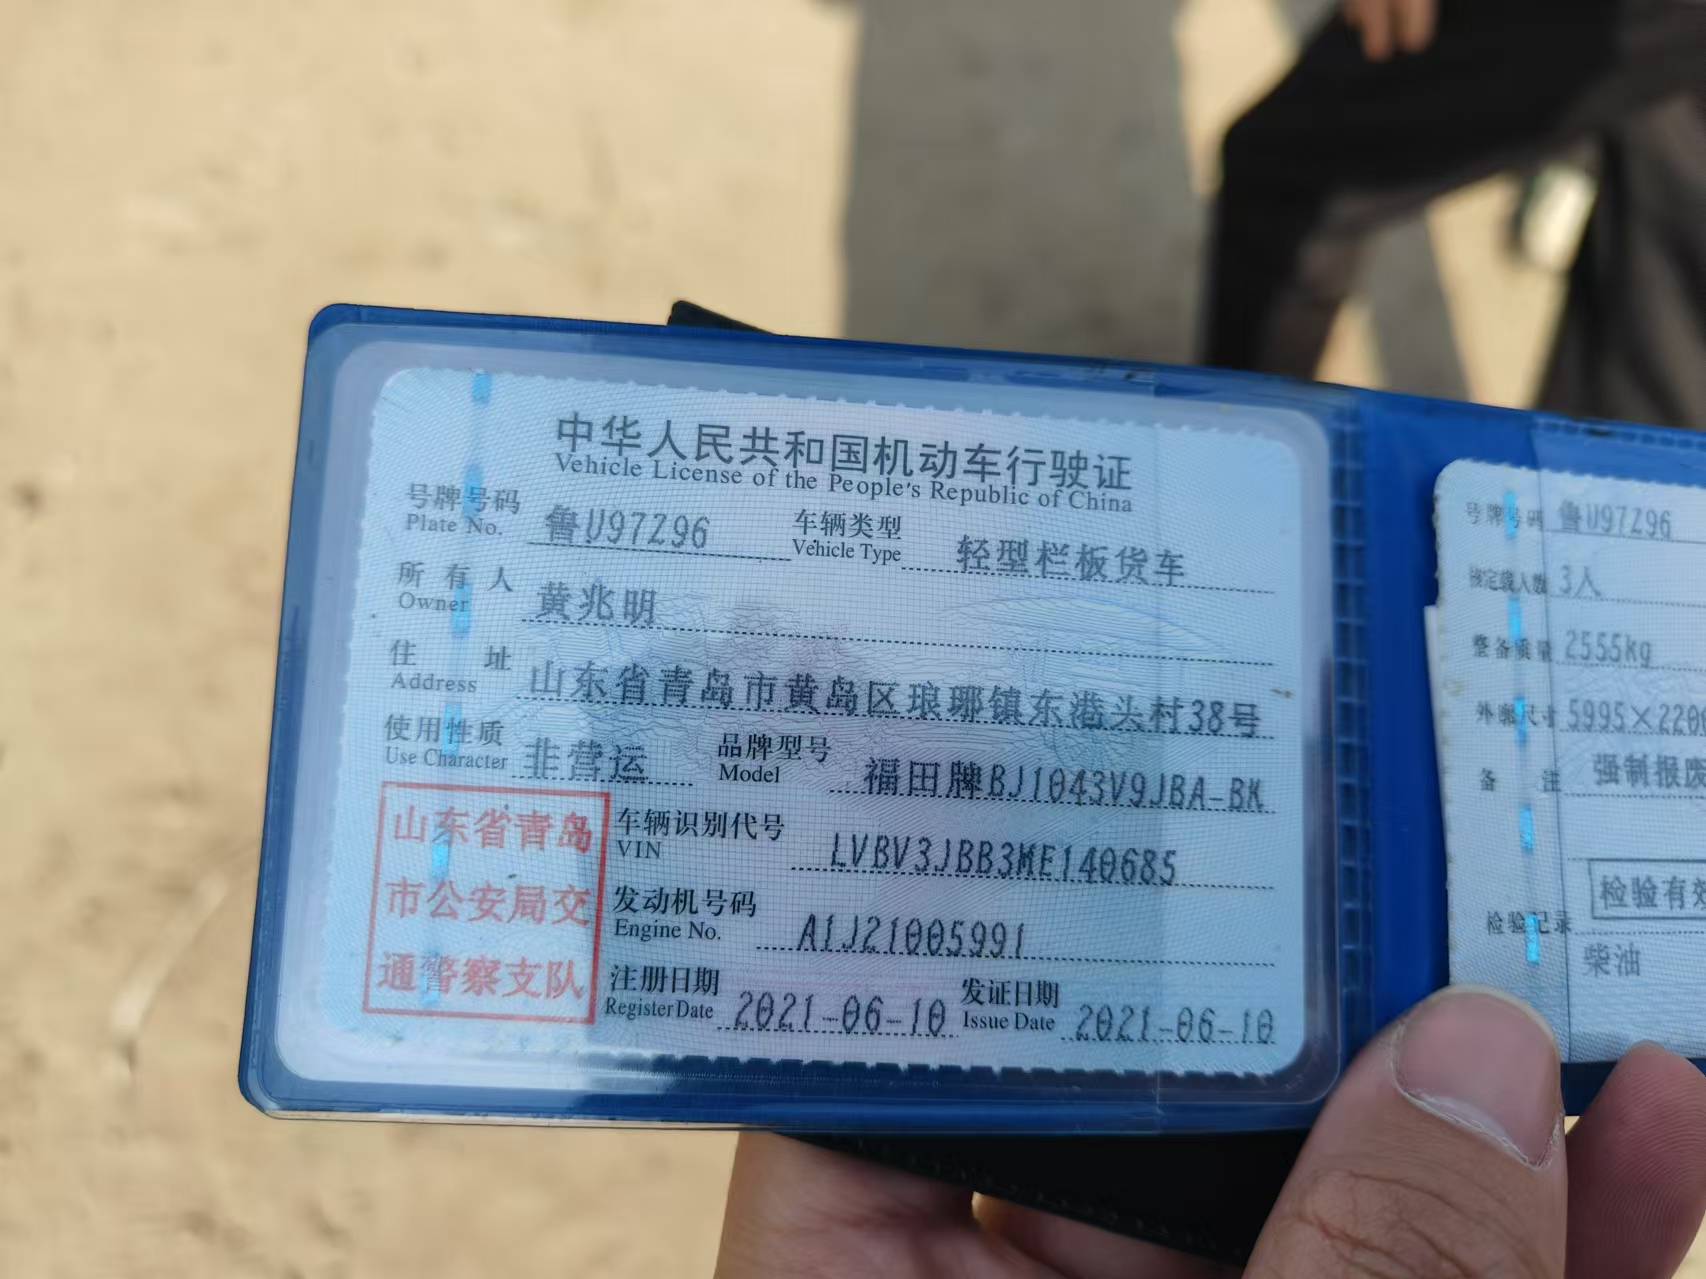 中华人民共和国机动车行驶证
Vehicle License of the People's Republic of China
号牌号码 鲁U97Z96 车辆类型 轻型栏板货车
Plate No. Vehicle Type
所有人 黄兆明
Owner
住址 山东省青岛市黄岛区琅琊镇东港头村38号
Address
使用性质 非营运 品牌型号 福田牌BJ1043V9JBA-BK
Use Character Model
山东省青岛
市公安局交
通警察支队
车辆识别代号 LVBV3JBB3ME140685
VIN
发动机号码 A1J21005991
Engine No.
注册日期 2021-06-10 发证日期 2021-06-10
Register Date Issue Date
号牌号码 鲁U97Z96
核定载人数 3人
整备质量 2555kg
外廓尺寸 5995×220
备注 强制报废
检验有效
检验记录
柴油